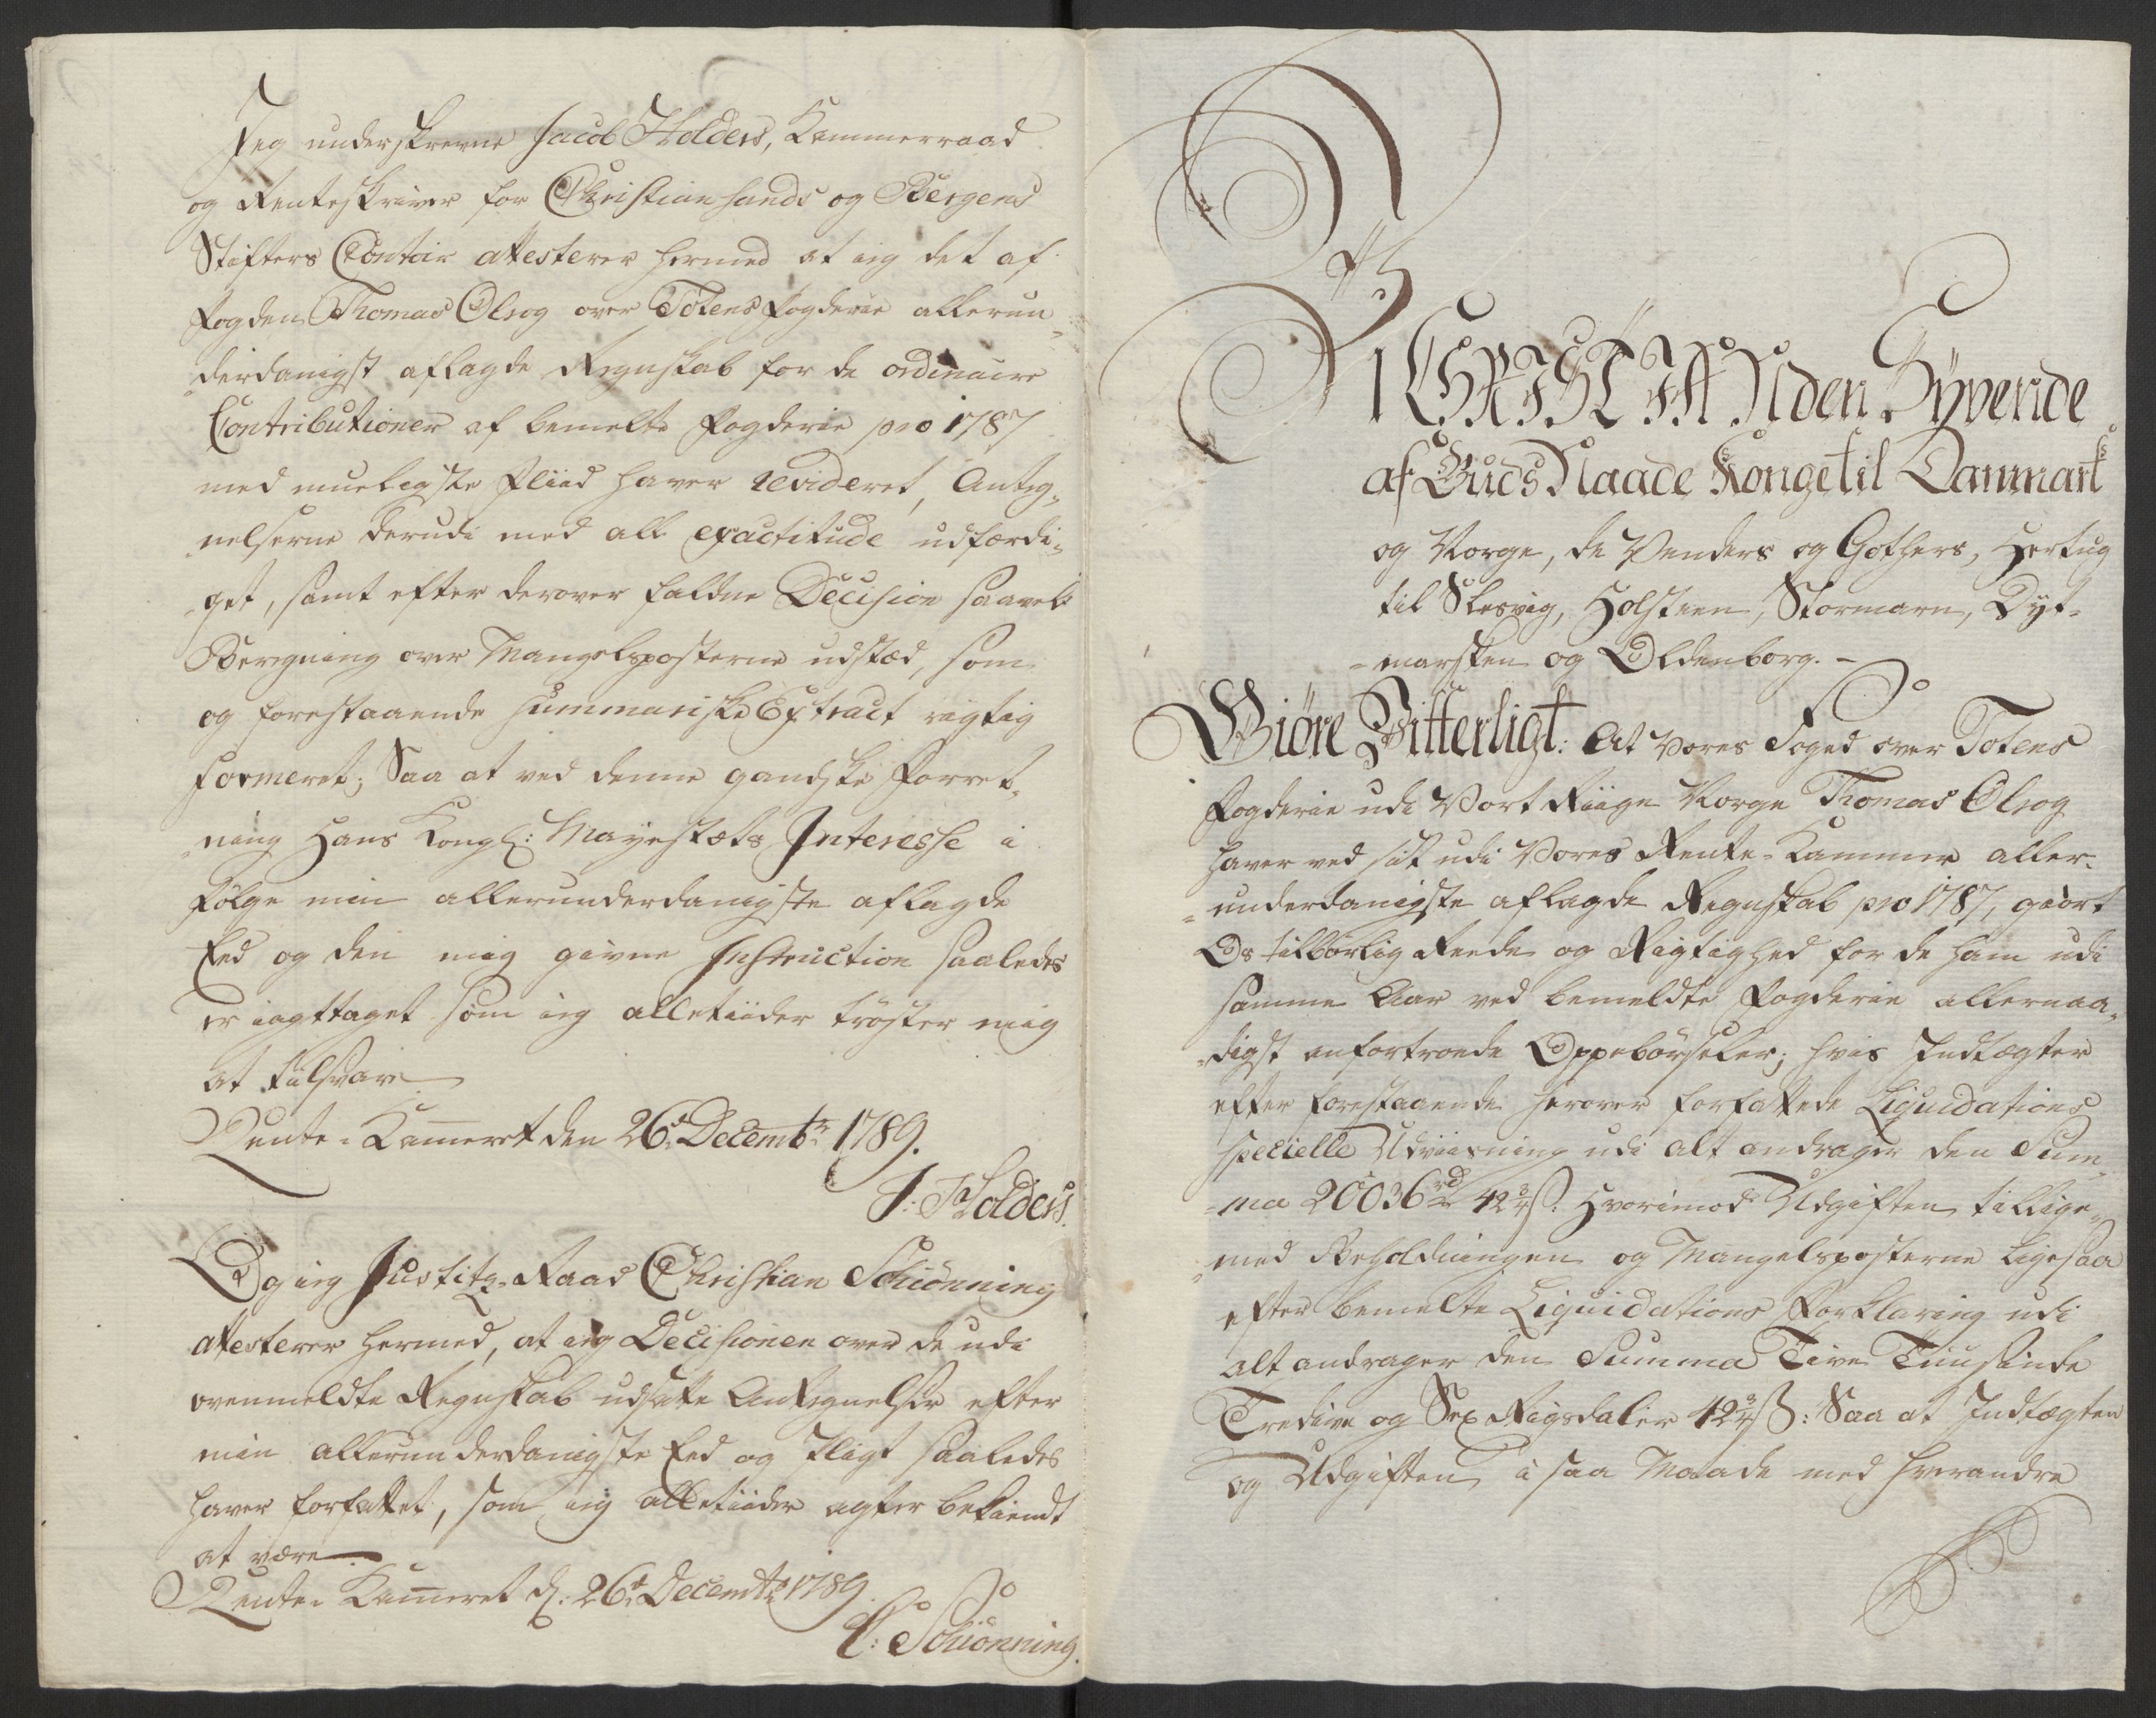 Jeg underskrevne Jacob Holders, Kammerraad
og Renteskriver for Christiansands og Bergens
Stifters Contoir attesterer hermed at ieg det af
Fogden Thomas Olrog over Totens Fogderie allerun-
derdanigst aflagde Regnskab for de ordinaire
Contributioner af bemelte Fogderie pro 1787
med mueligste Fliid haver revideret, Anteg-
nelserne derudi med all exactitude udfærdi-
get, samt efter derover faldne Decision saavel
Beregning over Mangelsposterne udstæd, som
og forestaaende summariske Extract rigtig
formeret; Saa at ved denne gandske Forret-
ning Hans Kongl: Mayestæts Interesse i
Følge min allerunderdanigste aflagde
Eed og den mig givne Instruction saaledes
er iagttaget som ieg alletiider trøster mig
at tilsvare
Rente-Kammeret den 26de Decembr 1789.
J: Holders.
Og ieg Justitz-Raad Christian Schiönning
attesterer hermed, at ieg Decisionen over de udi
ovenmeldte Regnskab udsatte Antegnelser efter
min allerunderdanigste Eed og Pligt saaledes
haver forfattet, som ieg alletiider agter bekiendt
at være
Rente-Kammeret d: 26de Decembr 1789.
C: Schiönning.
Vi CHRISTIAN den Syvende
af Guds Naade Konge til Danmark
og Norge, de Venders og Gothers, Hertug
til Slesvig, Holsteen, Stormarn, Dyt-
-marsken og Oldenborg. -
Giöre Vitterligt: At Vores Foged over Totens
Fogderie udi Vort Riige Norge Thomas Olrog
haver ved sit udi Vores Rente-Kammer aller-
-underdanigste aflagde Regnskab pro 1787, giört
Os tilbörlig Reede og Rigtighed for de ham udi
samme Aar ved bemeldte Fogderie allernaa-
-digst anfortroede Oppebörseler; hvis Indtægter
efter forestaaende herover forfattede Liquidations
specielle Udviisning udi alt andrager den Sum-
-ma 20036 rd 42 3/4 ß. Hvorimod Udgiften tillige-
-med Beholdningen og Mangelsposterne ligesaa
efter bemelte Liquidations Forklaring udi
alt andrager den Summa Tive Tuusinde
Tredive og Sex Rigsdaler 42 3/4 ß: Saa at Indtægten
og Udgiften i saa Maade med hverandre